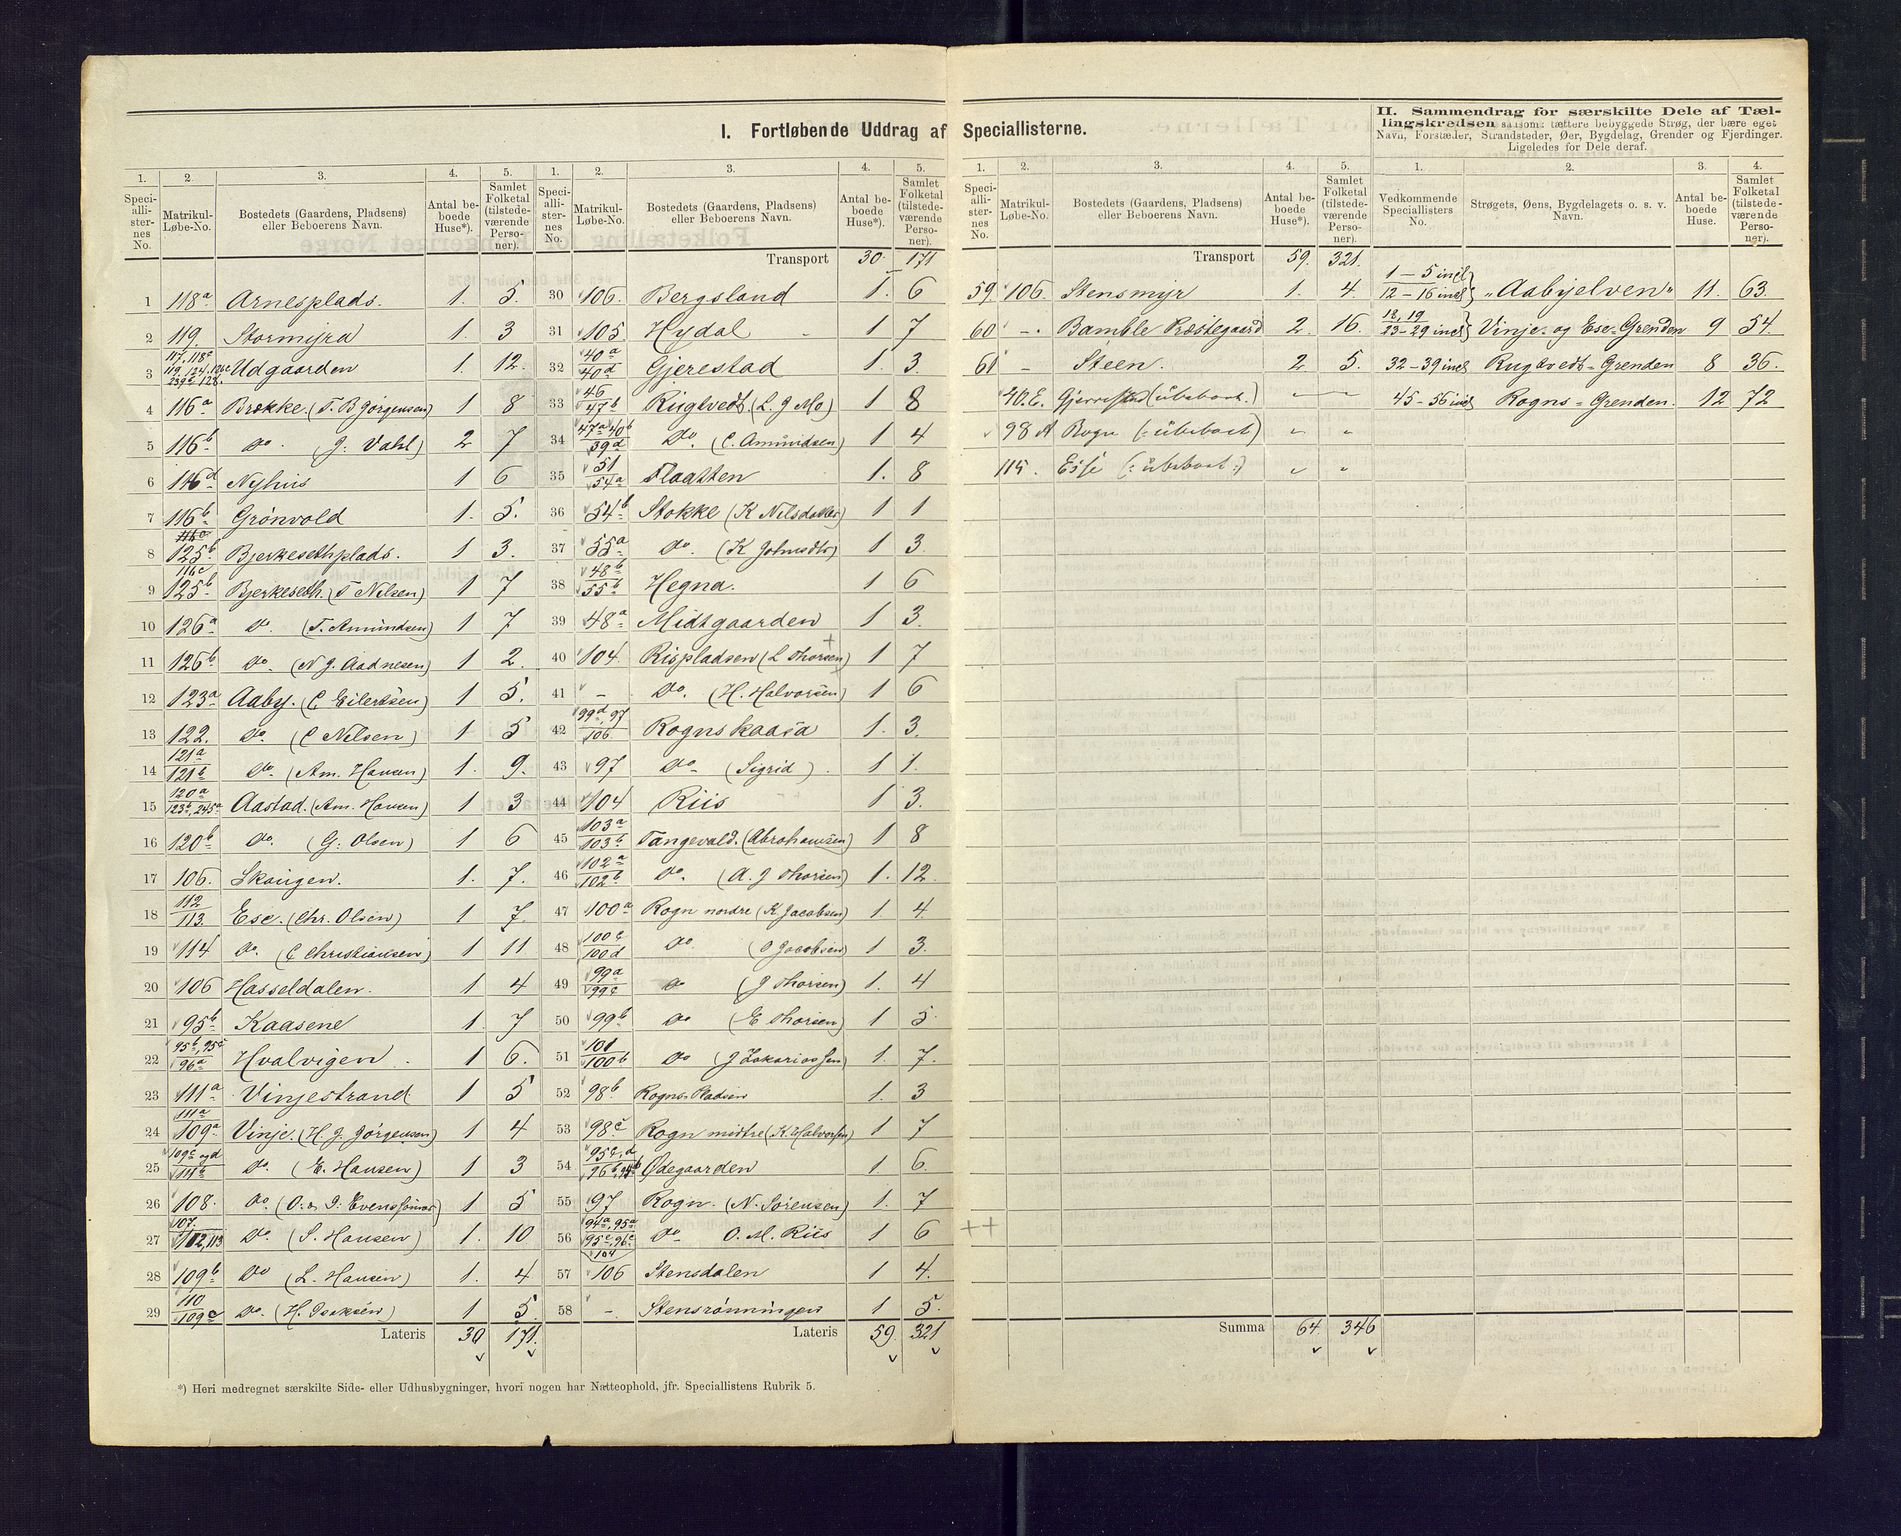 I. Fortløbende Uddrag af Speciallisterne.
II. Sammendrag for særskilte Dele af Tællingskredsen saasom: tættere bebyggede Strøg, der bære eget
Navn, Forstæder, Strandsteder, Øer, Bygdelag, Grender og Fjerdinger.
Ligeledes for Dele deraf.
1. 2. 3. 4. 5.
Speciallisternes No. Matrikul-Løbe-No. Bostedets (Gaardens, Pladsens) eller Beboerens Navn. Antal beboede Huse*). Samlet Folketal (tilstedeværende Personer).
1 118a Arnesplads. 1. 5.
2 119. Stormyra 1. 3
3 Udgaarden 1. 12.
4 116a Brække. (T. B Jørgensen) 1 8
5 116b do. (J. Vahl) 2 7
6 116d Nyhus 1 6
7 116b Grönvold 1. 5.
8 125b Bjerkesethplads. 1 3.
9 116c 125b Bjerkeseth. (T Nilsen) 1 7
10 126a do. (T. Amundsen) 1 7
11 126b do. (N J. Aadnesen) 1 2.
12 123a Aaby. (C Eilertsen) 1 5.
13 122. do. (C Nilsen) 1 5
14 121a 121b do. (Am. Hansen) 1. 9.
15 120a 123b, 245a Aastad. (Am. Hansen) 1 3
16 120b do. (G. Olsen) 1 6
17 106. Skougen. 1. 7.
18 112 113. Ese. (Chr. Olsen) 1 7.
19 114 do. (C Christiansen) 1 11
20 106 Hasseldalen. 1 4
21 95b Kaasene 1. 7
22 95b, 95c 96a Hvalvigen. 1 6.
23 111a Vinjestrand 1 5
24 111a 109a Vinje. (H J. Jörgensen) 1 4
25 109c og d 111b do. (E. Hansen) 1 3
26 108. do. (O. & J. Evens) 1 5
27 107. 112, 113 do. (S. Hansen) 1. 10
28 109b do (L. Hansen) 1. 4
29 110 109e do. (H. Isaksen) 1 5.
Lateris 30 171.
1. 2. 3. 4. 5.
Speciallisternes No. Matrikul-Løbe-No. Bostedets (Gaardens, Pladsens) eller Beboerens Navn. Antal beboede Huse*). Samlet Folketal (tilstedeværende Personer).
Transport 30. 171
30 106. Bergsland 1. 6
31 105. Hydal 1 7
32 40a 40d Gjerestad 1. 3.
33 46 47b Rugtvedt (L. J Mo) 1 8
34 47a 40b 39d do. (C. Amundsen) 1 4
35 51 54a Flaatten 1. 8
36 54b Stokke (K Nilsdatter) 1 1
37 55a do. (K Johnsdtr) 1 3.
38 48b 55b Hegna. 1 6
39 48a Midtgaarden 1 3.
40 104. Rispladsen (L Thorsen) 1 7
41 - do. (H. Halvorsen) 1 6
42 99d, 97 106. Rognskaasa 1. 3.
43 97 do (Sigrid) 1 1.
44 104 Riis 1 3.
45 103a 103b Tangevald. (Abrahamsen) 1 8
46 102a 102b do. (A. J Thorsen) 1. 12.
47 100a Rogn nordre (K Jacobsen) 1. 4
48 100c 100d do (J Jacobsen) 1 3.
49 99a 99c do (J Thorsen) 1. 4
50 99b do (E Thorsen) 1 5.
51 101 100b do (J Zakariassen) 1. 7.
52 98b Rogns-Pladsen 1. 3
53 98c Rogn midtre (K Halvorsen) 1 7
54 95c, d 96b, 94b Ødegaarden 1 6.
55 97 Rogn. (N. Sörensen) 1. 7
56 94a, 95a 95e, 96c 104 do O. M. Riis 1 6
57 106 Stensdalen 1 4.
58 - Stensrönningen 1 5.
Lateris 59. 321
*) Heri medregnet særskilte Side- eller Udhusbygninger, hvori nogen har Natteophold, jfr. Speciallistens Rubrik 5.
1. 2. 3. 4. 5.
Speciallisternes No. Matrikul-Løbe-No. Bostedets (Gaardens, Pladsens) eller Beboerens Navn. Antal beboede Huse*). Samlet Folketal (tilstedeværende Personer).
Transport 59. 321.
59. 106. Stensmyr 1. 4.
60 -. Bamble Præstegaard 2. 16.
61 - Steen. 2. 5.
40. E. Gjerrestad (ubeboet.) - -
98 A Rogn (: ubeboet)
115. Esse (: ubeboet :)
++
Summa 64. 346
1. 2. 3. 4.
Vedkommende Speciallisters No. Strøgets, Øens, Bygdelagets o. s. v. Navn. Antal Huse. Samlet Folketal (tilstedeværende Personer).
1 - 5 incl 12 - 16 incl } "Aabyelven" 11. 63.
18, 19 23 - 29 incl } Vinje- og Ese-Grenden 9 54.
32 - 39 incl Rugtvedt-Grenden 8 36.
45 - 56 incl Rogns-Grenden. 12 72